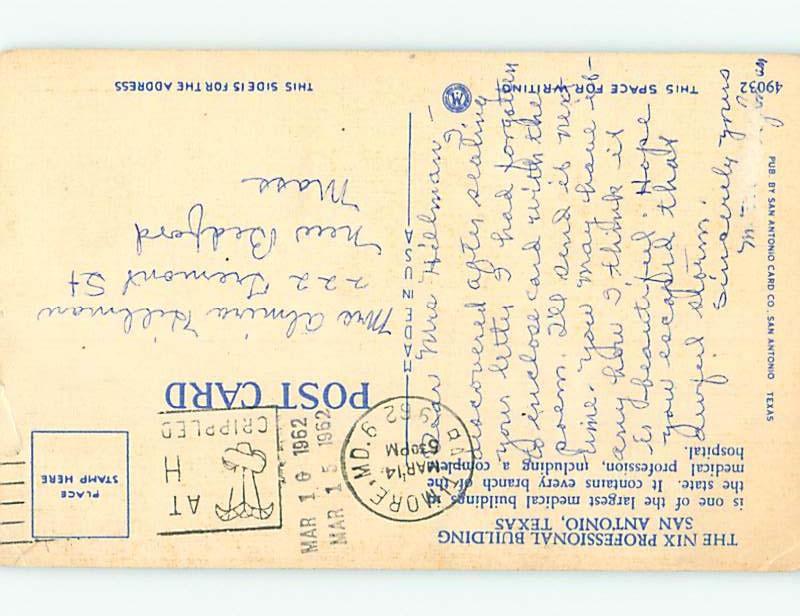 THE NIX PROFESSIONAL BUILDING
SAN ANTONIO, TEXAS
is one of the largest medical buildings in
the state. It contains every branch of the
medical profession, including a complete
hospital.
POST CARD
PLACE
STAMP HERE
AT
H
CRIPPLED
MORE, MD. 9
MAR 14
6 30 PM
1962
MAR 16 1962
MAR 15 1962
Mrs Almira Hillman
222 Fremont St
New Bedford
Mass
Dear Mrs Hillman -
discovered after sealing
your letter I had forgotten
to inclose card with the
poem. I'll send it next
time. You may have it -
any how I think it
is beautiful. Hope
you escaped that
awful storm.
Sincerely yours
MADE IN U.S.A.
THIS SPACE FOR WRITING
THIS SIDE IS FOR THE ADDRESS
49032
PUB. BY SAN ANTONIO CARD CO., SAN ANTONIO, TEXAS